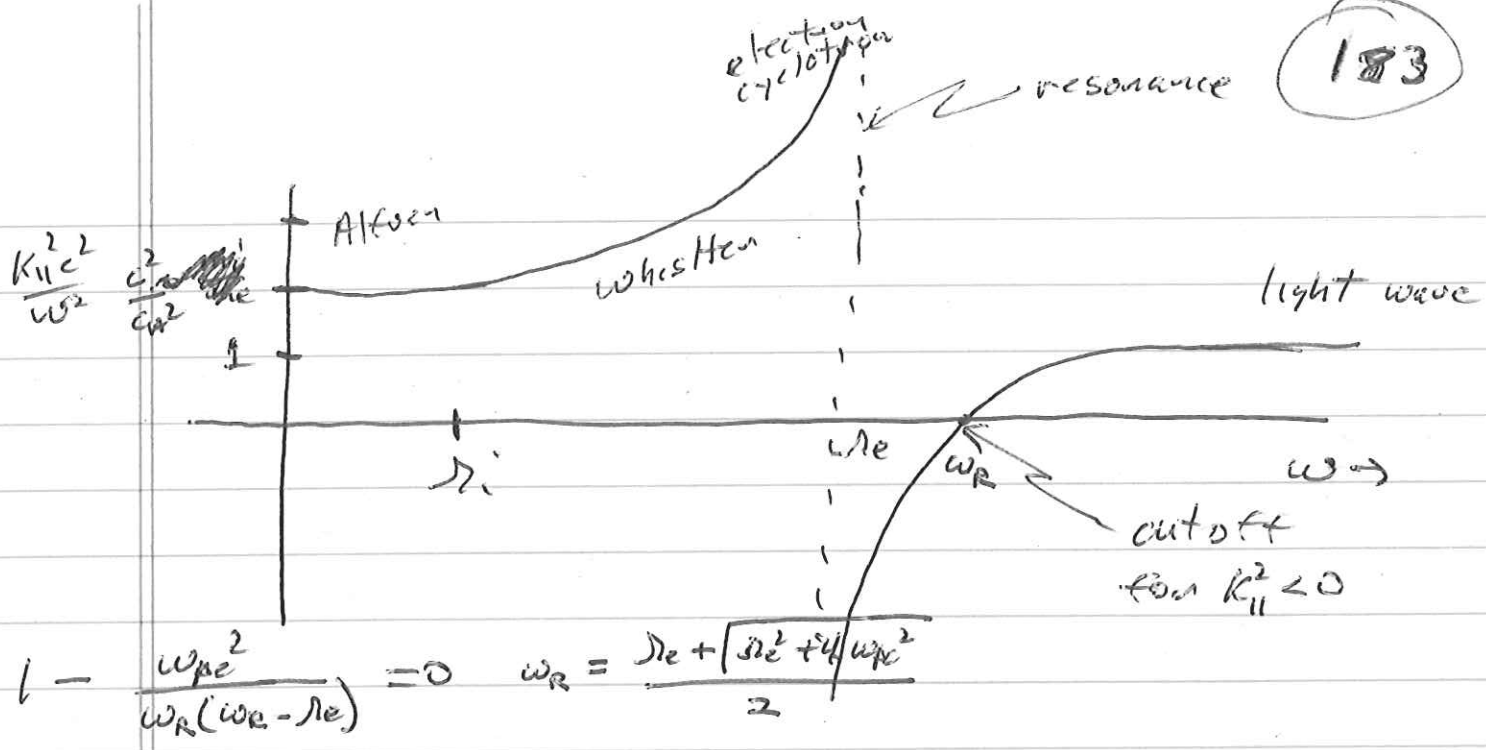 183
electron
cyclotron
resonance
Alfven
K∥²c²/ω² c²/c_A²
whistler
light wave
1
Ωi
Ωe
ω_R
ω→
cutoff
for K∥² <0
1 - ω_pe²/(ω_R(ω_R-Ωe)) =0 ω_R = (Ωe+√(Ωe²+4ω_pe²))/2